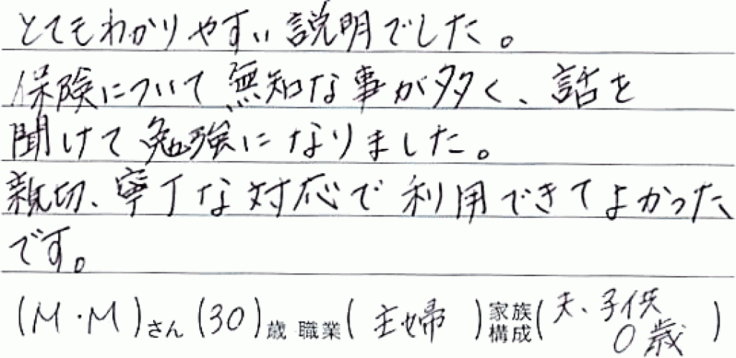 とてもわかりやすい説明でした。
保険について無知な事が多く、話を
聞けて勉強になりました。
親切、寧丁な対応で利用できてよかった
です。
(M・M)さん(30)歳 職業(主婦)家族構成(夫、子供0歳)